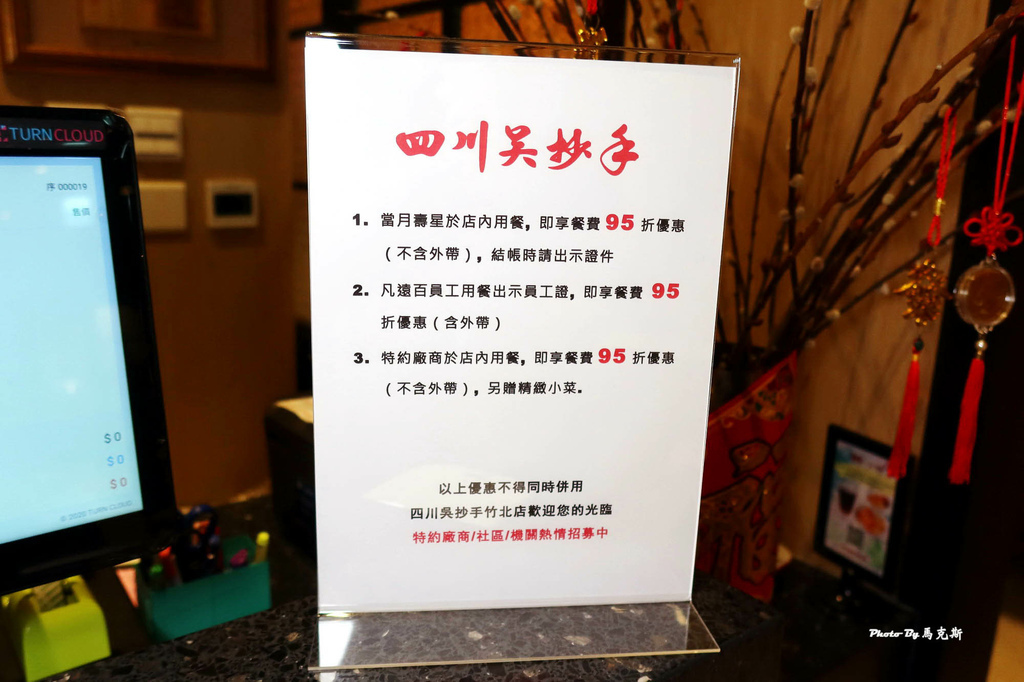 TURNCLOUD
序 000019
售價
$0
$0
$0
© 2020 TURN CLOUD
四川吳抄手
1. 當月壽星於店內用餐，即享餐費 95 折優惠
（不含外帶），結帳時請出示證件
2. 凡遠百員工用餐出示員工證，即享餐費 95
折優惠（含外帶）
3. 特約廠商於店內用餐，即享餐費 95 折優惠
（不含外帶），另贈精緻小菜.
以上優惠不得同時併用
四川吳抄手竹北店歡迎您的光臨
特約廠商/社區/機關熱情招募中
Photo By 馬克斯